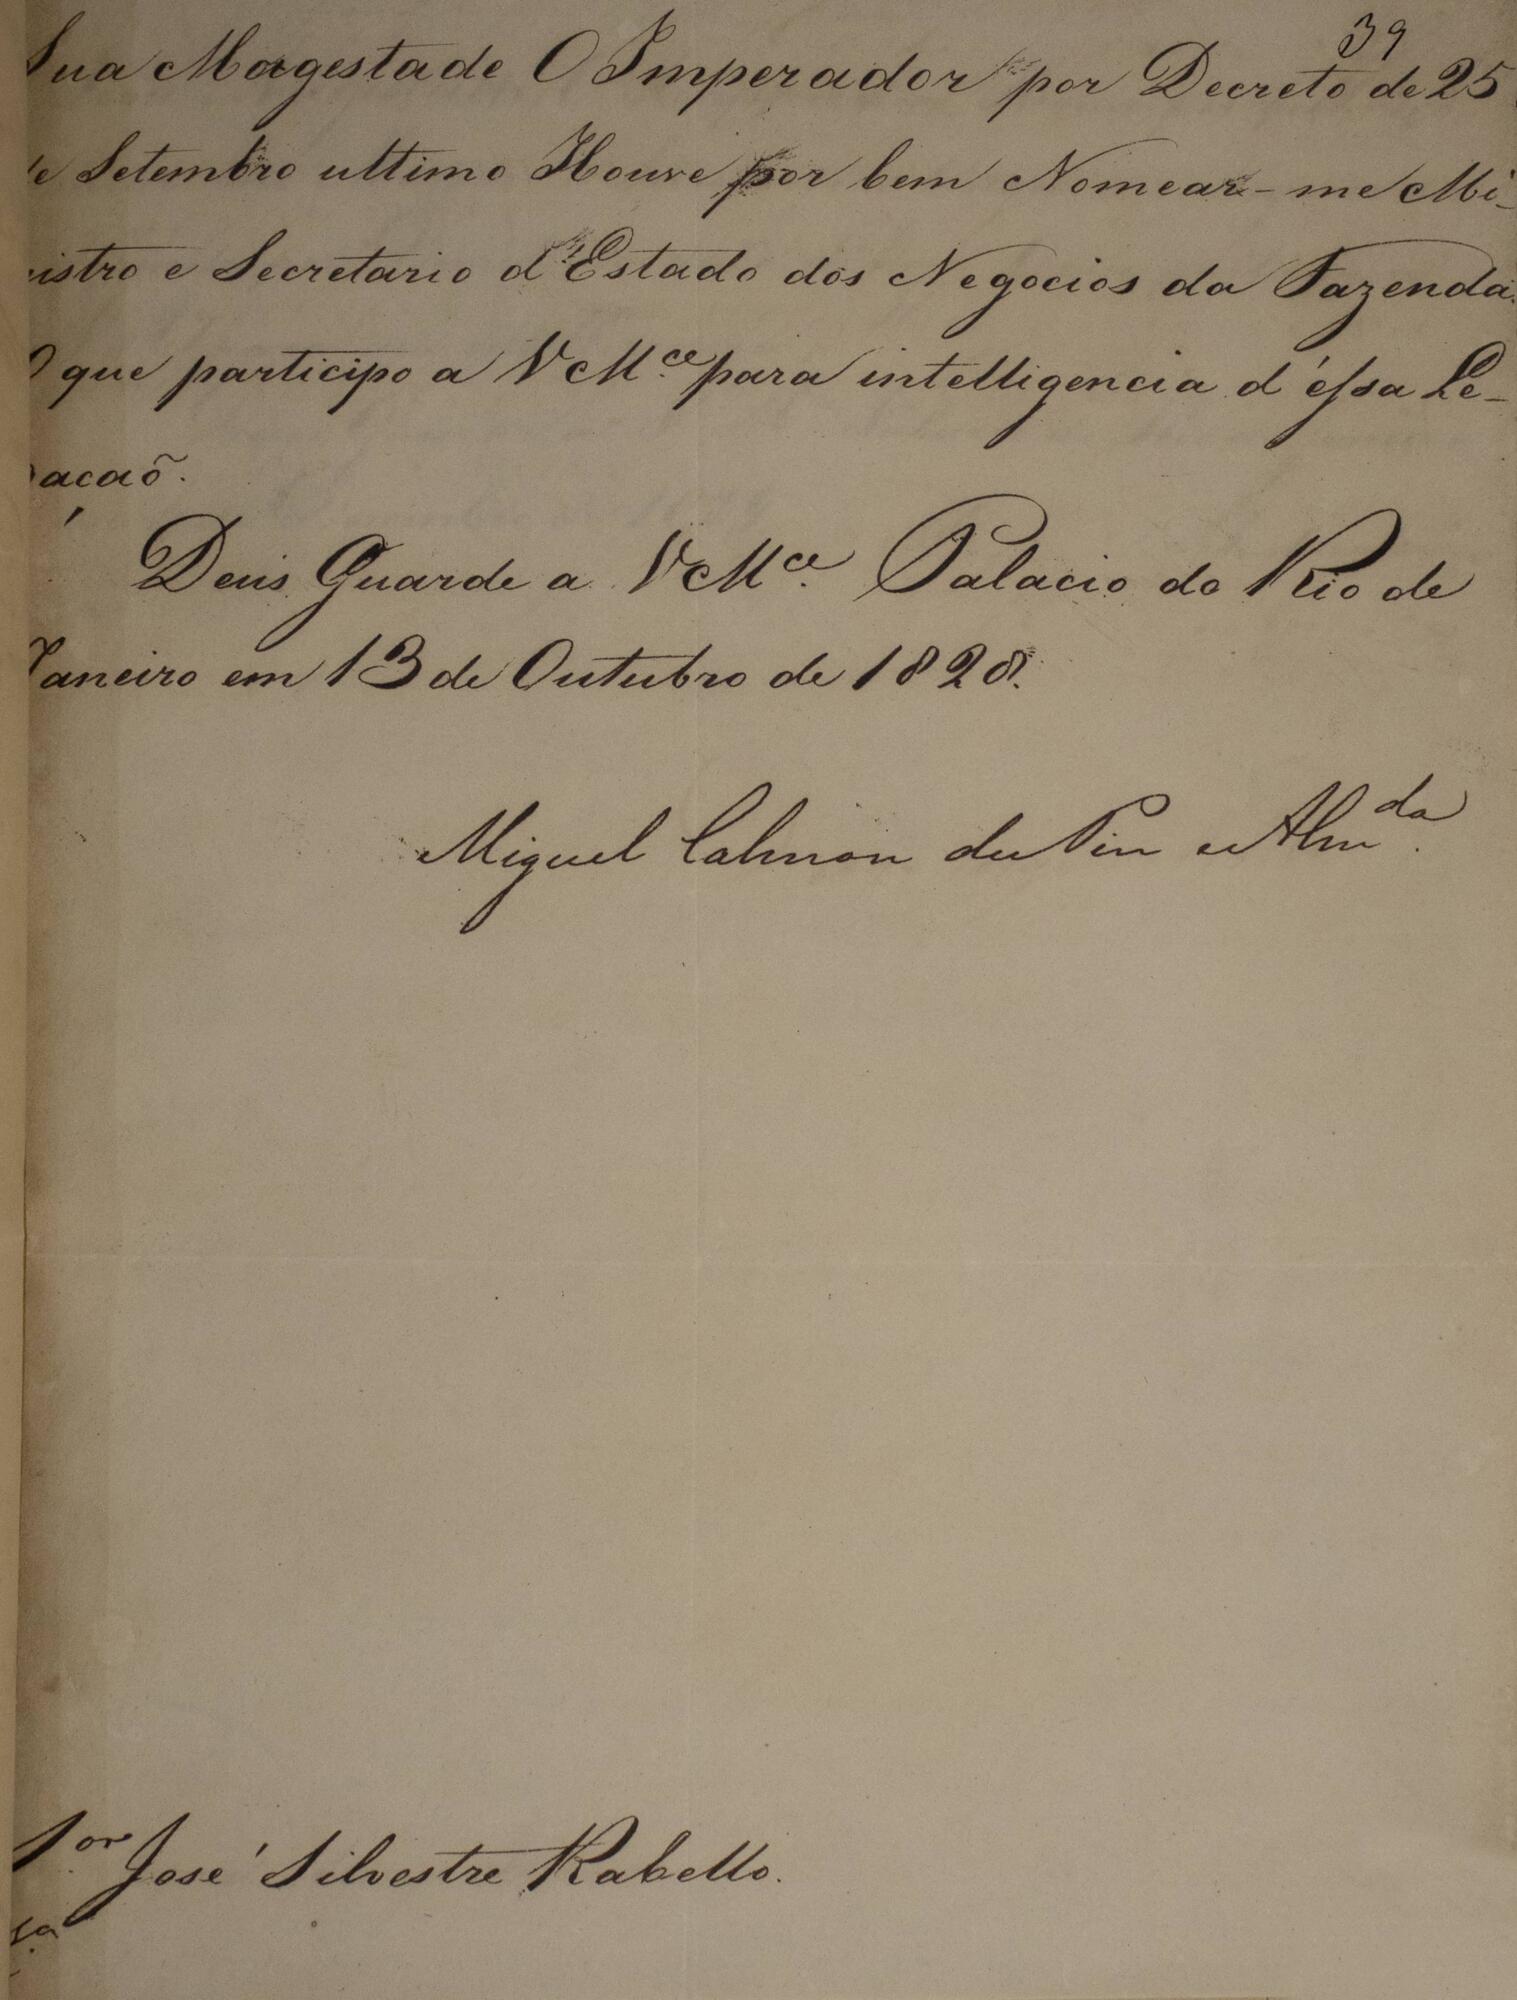 39
Sua Magestade O Imperador por Decreto de 25
de Setembro ultimo Houve por bem Nomear-me Mi-
nistro e Secretario d'Estado dos Negocios da Fazenda.
O que participo a VM.ce para intelligencia d'éssa Le-
gacaõ.
Deus Guarde a VM.ce Palacio do Rio de
Janeiro em 13 de Outubro de 1828.
Miguel Calmon du Pin e Alm.da
S.or José Silvestre Rabello.